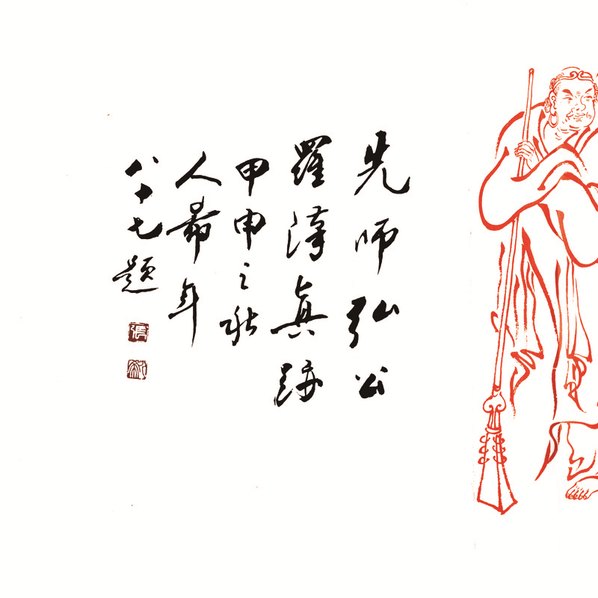 先师弘公
羅漢真跡
甲申之秋
人希年
八十七題
張